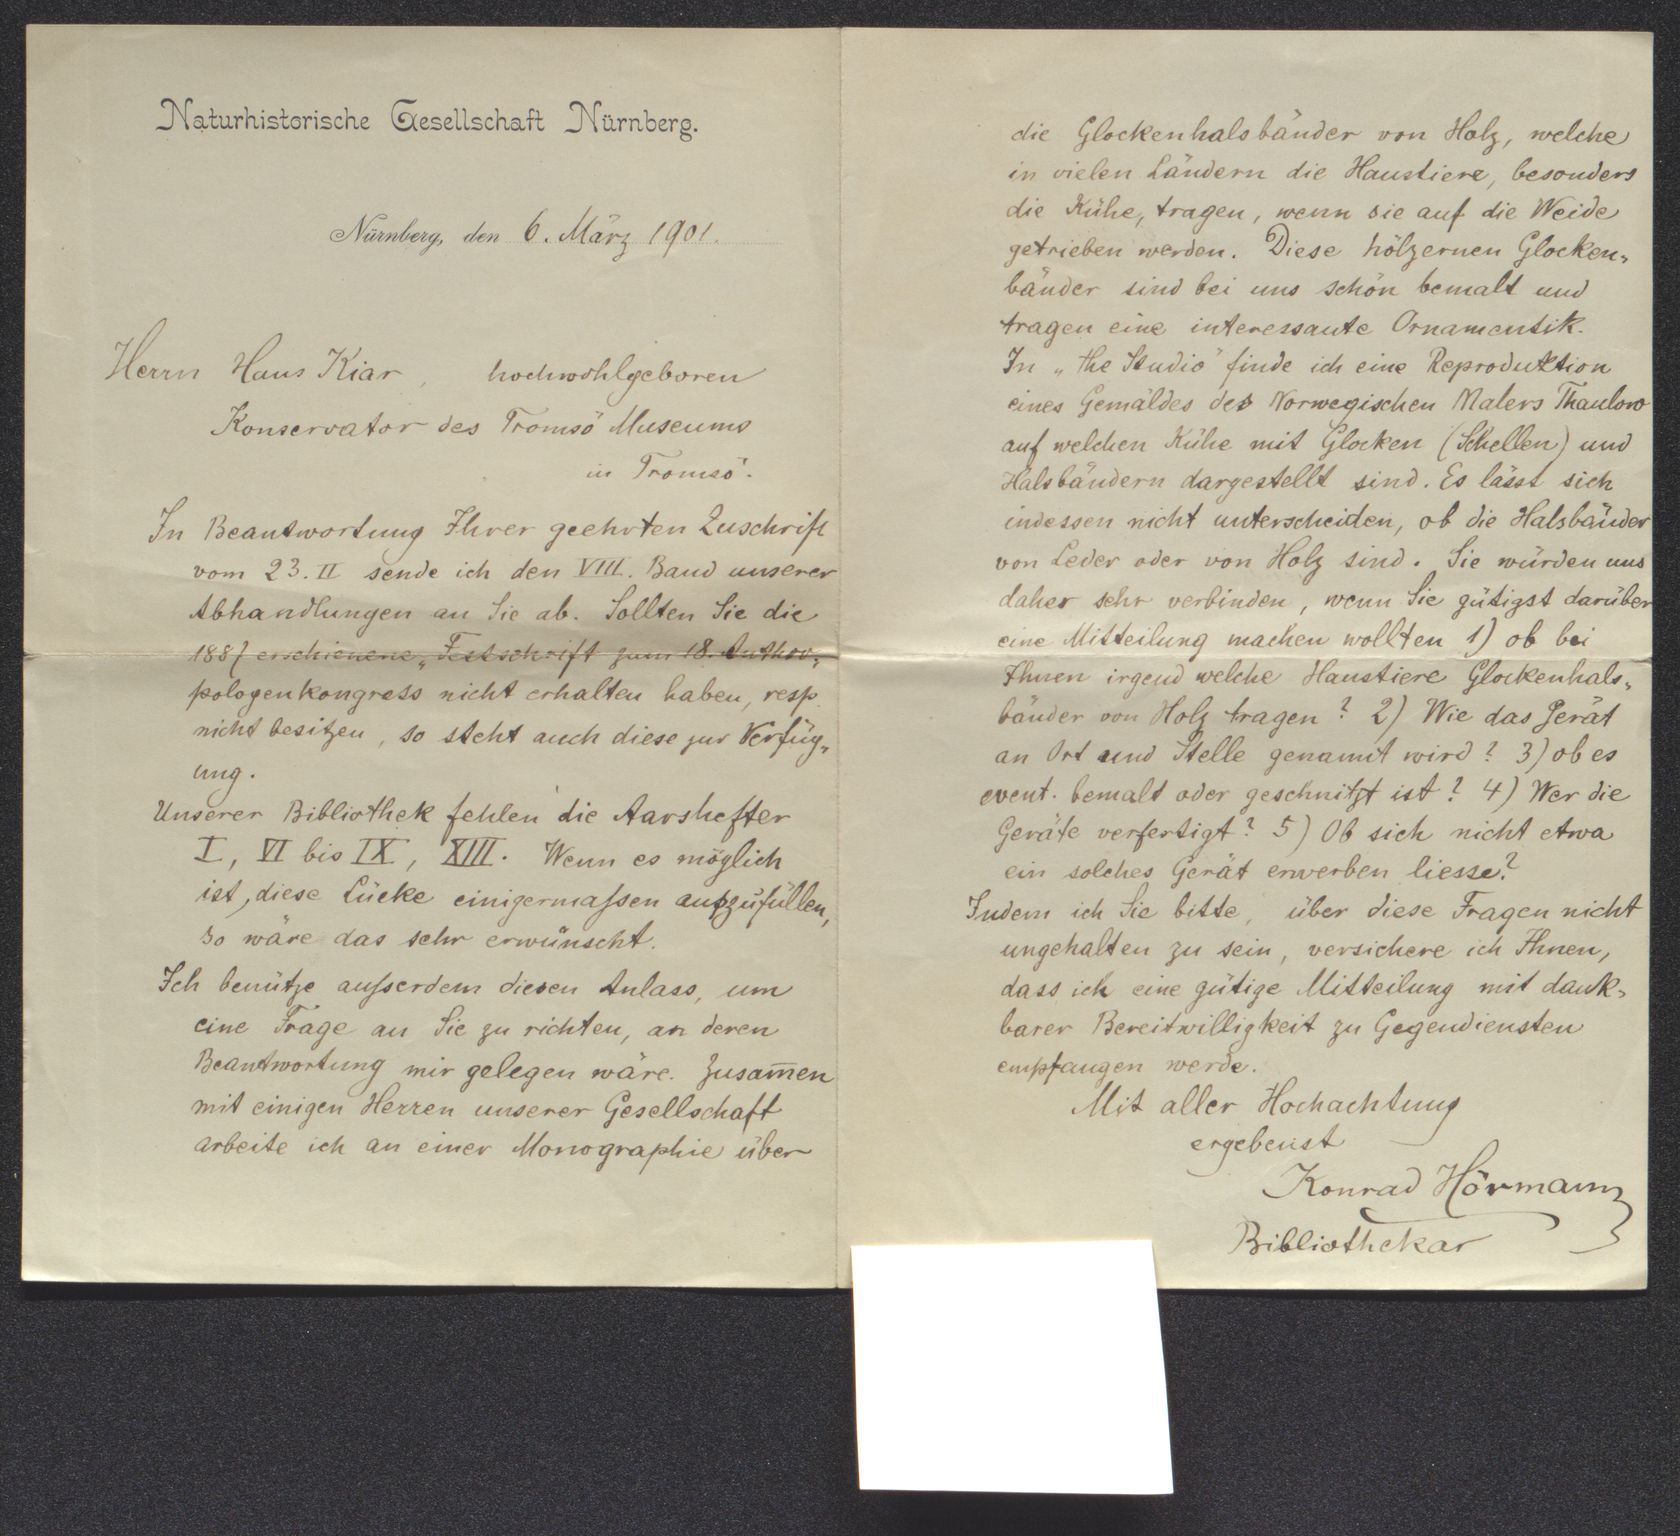 Naturhistorische Gesellschaft Nürnberg.
Nürnberg, den 6. März 1901.
Herrn Hans Kiar, hochwohlgeboren
Konservator des Tromsö Museums
in Tromsö.
In Beantwortung Ihrer geehrten Zuschrift
vom 23. II sende ich den VIII. Band unserer
Abhandlungen an Sie ab. Sollten Sie die
1887 erschienene „Festschrift zum 18. Anthro„
pologenkongress nicht erhalten haben, resp.
nicht besitzen, so steht auch diese zur Verfüg„
ung.
Unserer Bibliothek fehlen die Aarshefter
I, VI bis IX, XIII. Wenn es möglich
ist, diese Lücke einigermaßen auszufüllen,
so wäre das sehr erwünscht.
Ich benütze außerdem diesen Anlass, um
eine Frage an Sie zu richten, an deren
Beantwortung mir gelegen wäre. Zusam̅en
mit einigen Herren unserer Gesellschaft
arbeite ich an einer Monographie über
die Glockenhalsbänder von Holz, welche
in vielen Ländern die Haustiere, besonders
die Kühe, tragen, wenn sie auf die Weide
getrieben werden. Diese hölzernen Glocken„
bänder sind bei uns schön bemalt und
tragen eine interessante Ornamentik.
In „the Studio" finde ich eine Reproduktion
eines Gemäldes des Norwegischen Malers Thaulow
auf welchen Kühe mit Glocken (Schellen) und
Halsbändern dargestellt sind. Es lässt sich
indessen nicht unterscheiden, ob die Halsbänder
von Leder oder von Holz sind. Sie würden uns
daher sehr verbinden, wenn Sie gütigst darüber
eine Mitteilung machen wollten 1) ob bei
Ihnen irgend welche Haustiere Glockenhals„
bänder von Holz tragen? 2) Wie das Gerät
an Ort und Stelle genannt wird? 3) ob es
event. bemalt oder geschnitzt ist? 4) Wer die
Geräte verfertigt? 5) Ob sich nicht etwa
ein solches Gerät erwerben liesse?
Indem ich Sie bitte, über diese Fragen nicht
ungehalten zu sein, versichere ich Ihnen,
dass ich eine gütige Mitteilung mit dank„
barer Bereitwilligkeit zu Gegendiensten
empfangen werde.
Mit aller Hochachtung
ergebenst
Konrad Hörmann
Bibliothekar